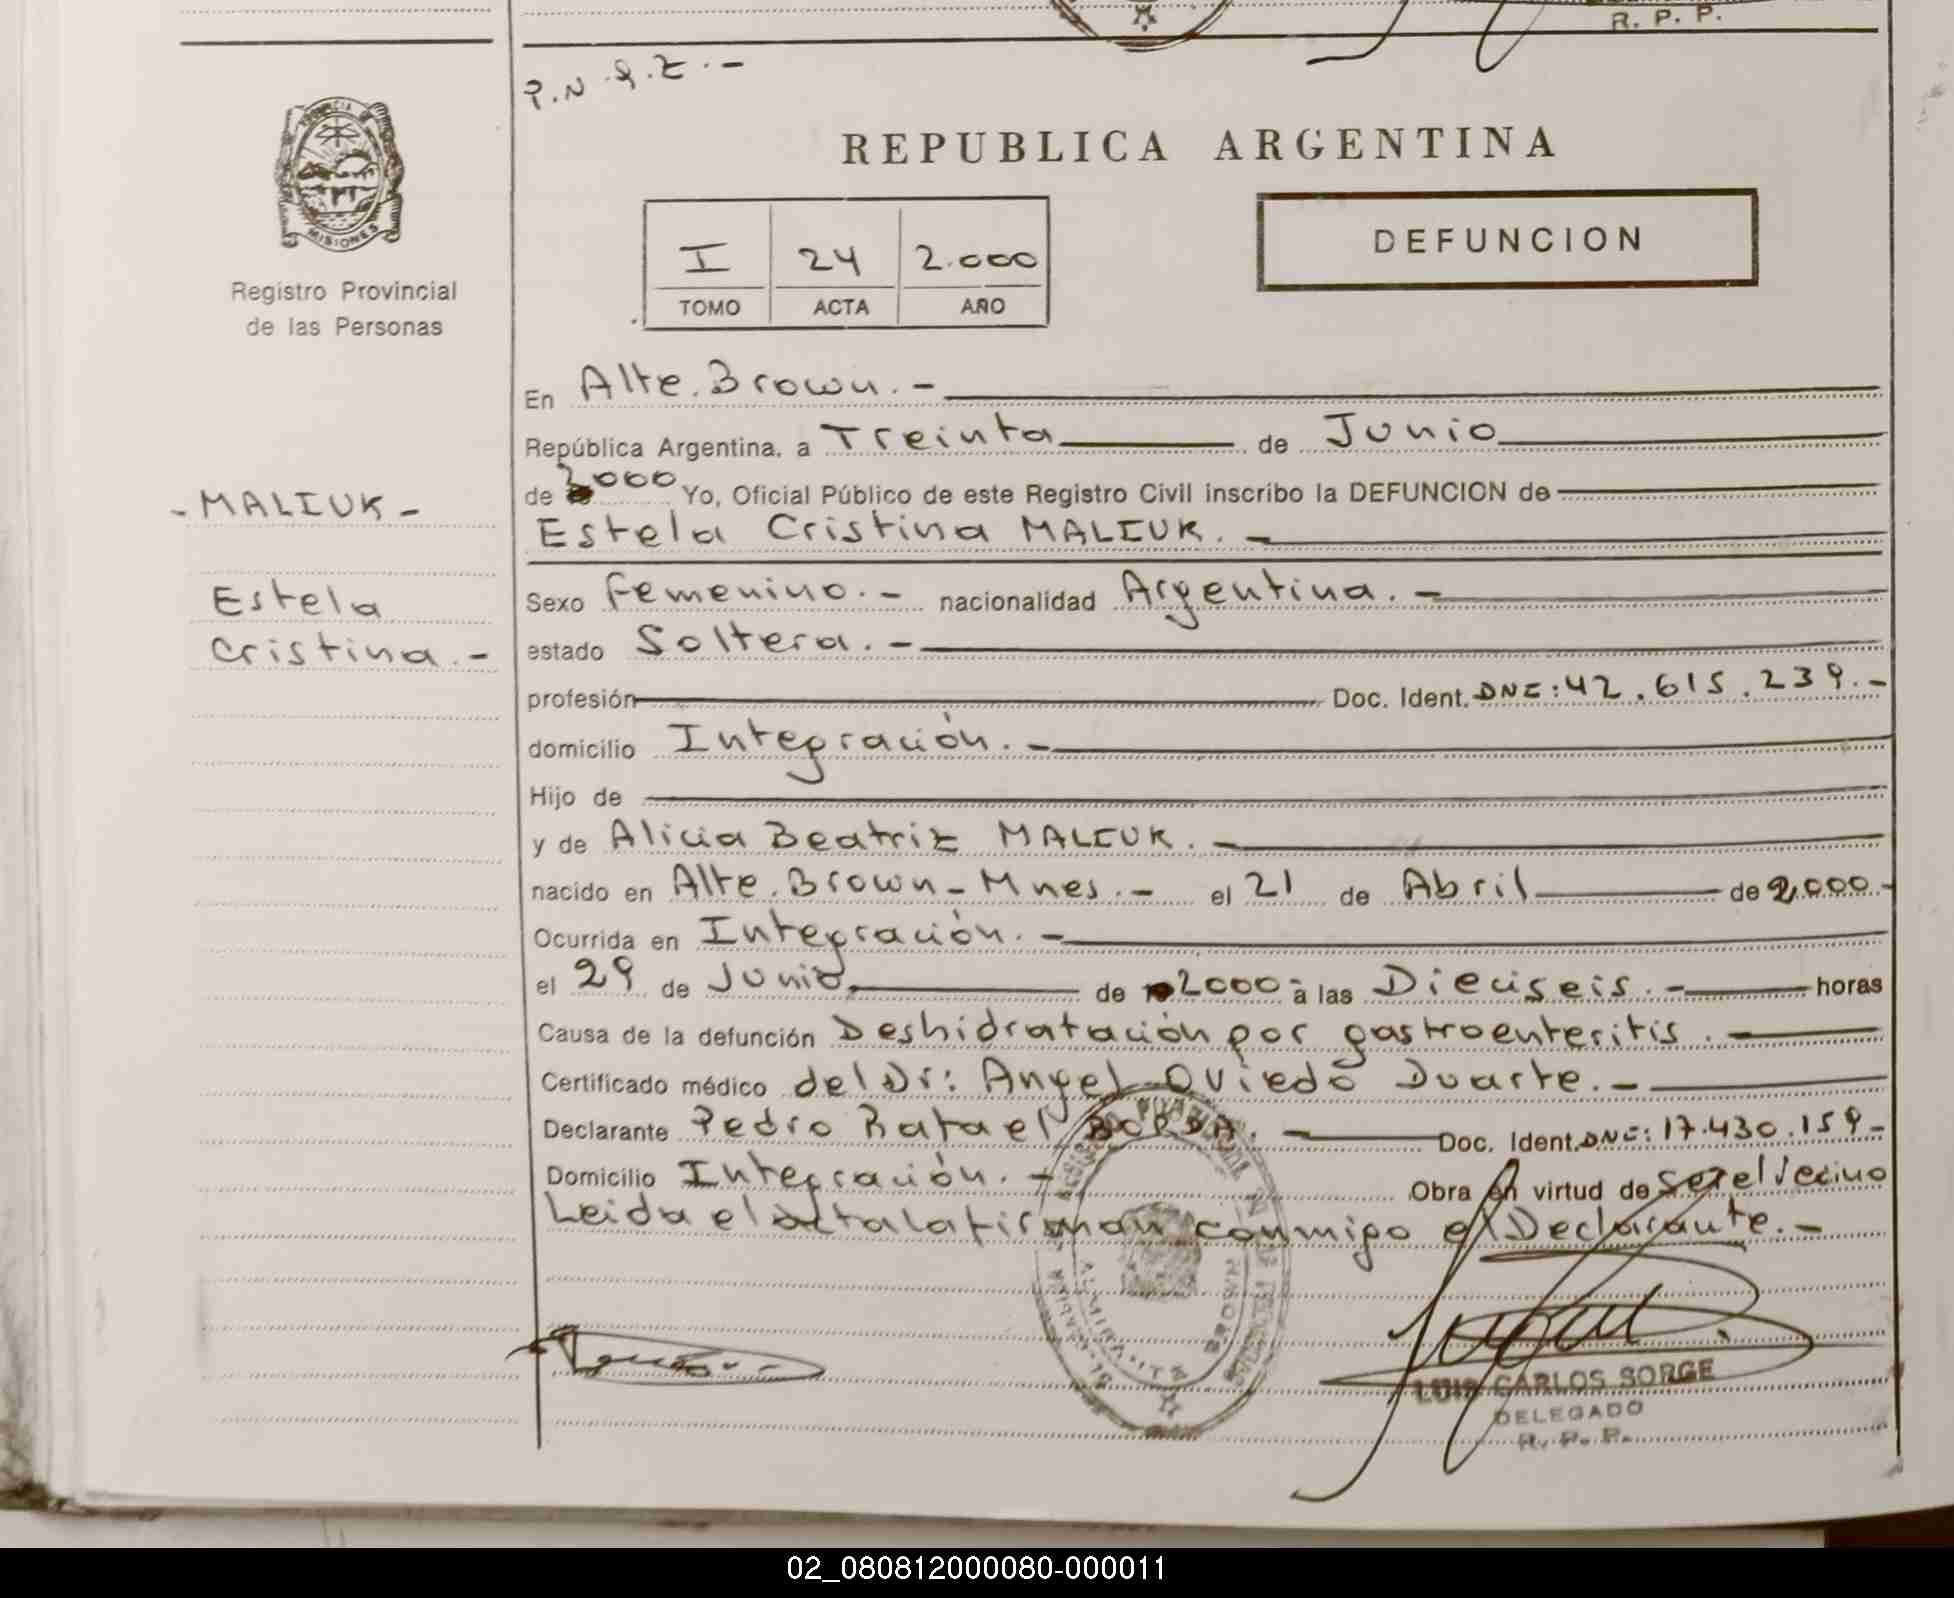 R. P. P.
P.N.Q.Z.-
REPUBLICA ARGENTINA
PROVINCIA
MISIONES
I 24 2.000
TOMO ACTA AÑO
DEFUNCION
Registro Provincial
de las Personas
En Alte. Brown.-
República Argentina, a Treinta de Junio
de 2000 Yo, Oficial Público de este Registro Civil inscribo la DEFUNCION de
- MALIUK -
Estela Cristina MALIUK.-
Estela
Cristina.-
Sexo Femenino.- nacionalidad Argentina.-
estado Soltera.-
profesión Doc. Ident. DNI: 42.615.239.-
domicilio Integración.-
Hijo de
y de Alicia Beatriz MALIUK.-
nacido en Alte. Brown - Mnes.- el 21 de Abril de 2.000.-
Ocurrida en Integración.-
el 29 de Junio de 2000 à las Dieciseis.- horas
Causa de la defunción Deshidratación por gastroenteritis.-
Certificado médico del Dr: Angel Oviedo Duarte.-
Declarante Pedro Rafael BORDA.- Doc. Ident. DNI: 17.430.159-
Domicilio Integración.- Obra en virtud de ser el Vecino
Leida el acta la firman conmigo el Declarante.-
ALMIRANTE BROWN
LUIS CARLOS SORGE
DELEGADO
R. P. P.
02_080812000080-000011